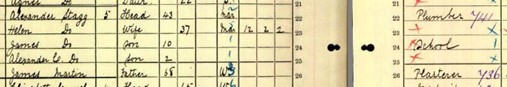 Do Daur 22 21
Alexander Stagg 5 Head 43 Mar 22 Plumber Y41
Helen Do Wife 37 Mar 12 2 2 23
James Do Son 10 24 School
Alexander C. Do Son 2 25
James Marton Father 68 26 Plasterer Y36
Head